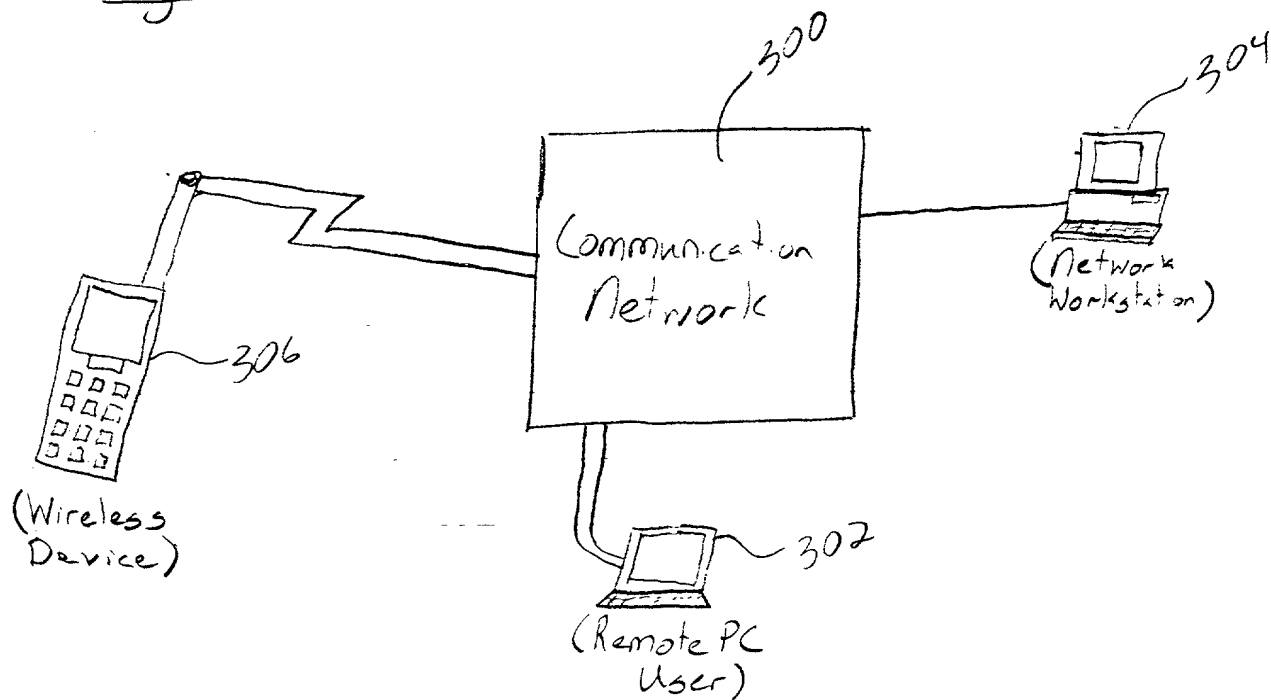 300
304
Communication
Network
(Network
Workstation)
306
(Wireless
Device)
302
(Remote PC
User)